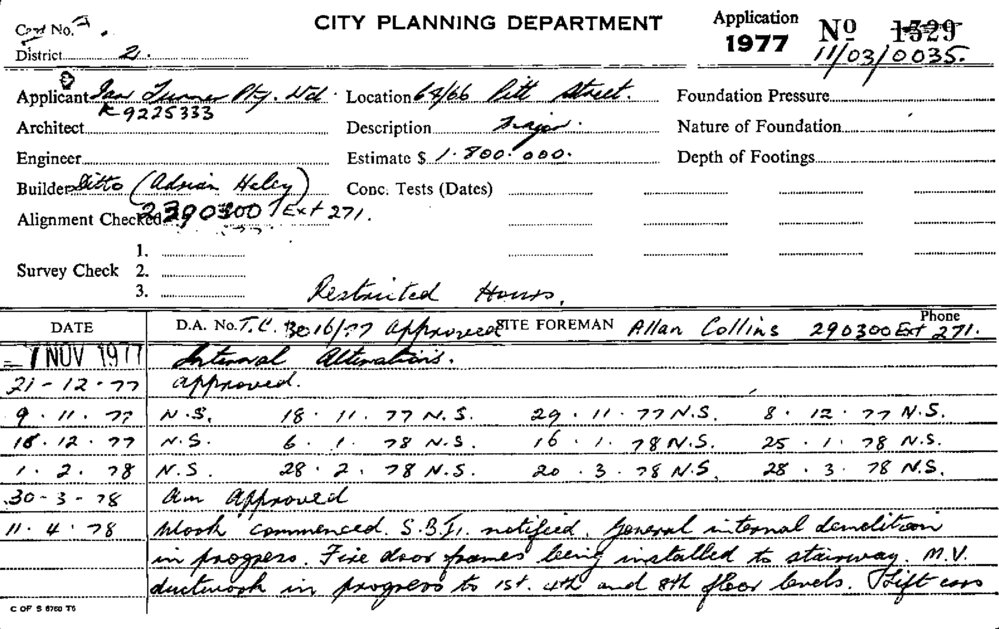 CITY PLANNING DEPARTMENT
Card No.
Application
1977
No 1529
11/03/0035.
District 2.
Applicant Ian Turner Pty. Ltd. Location 64/66 Pitt Street. Foundation Pressure
K 9225333
Architect Description Major. Nature of Foundation
Engineer Estimate $ 1.800.000. Depth of Footings
Builder Ditto (Adrian Heley) Conc. Tests (Dates)
Alignment Checked 290300 Ext 271.
1.
Survey Check 2.
3.
Restricted Hours.
DATE D.A. No. T.C. 3016/77 Approved SITE FOREMAN Allan Collins Phone 290300 Ext 271.
= 7 NOV 1977 Internal Alterations.
21-12-77 approved.
9.11.77 N.S. 18.11.77 N.S. 29.11.77 N.S. 8.12.77 N.S.
18.12.77 N.S. 6.1.78 N.S. 16.1.78 N.S. 25.1.78 N.S.
1.2.78 N.S. 28.2.78 N.S. 20.3.78 N.S. 28.3.78 N.S.
30-3-78 am Approved
11.4.78 Work commenced. S.B.I. notified. General internal demolition
in progress. Fire door frames being installed to stairway. M.V.
ductwork in progress to 1st. 4th and 8th floor levels. Lift cars
C OF S 6760 T5